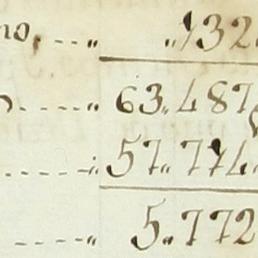 no, ...„ „132
o.....„ 63„487
.....„ 57„774
....„ 5„772